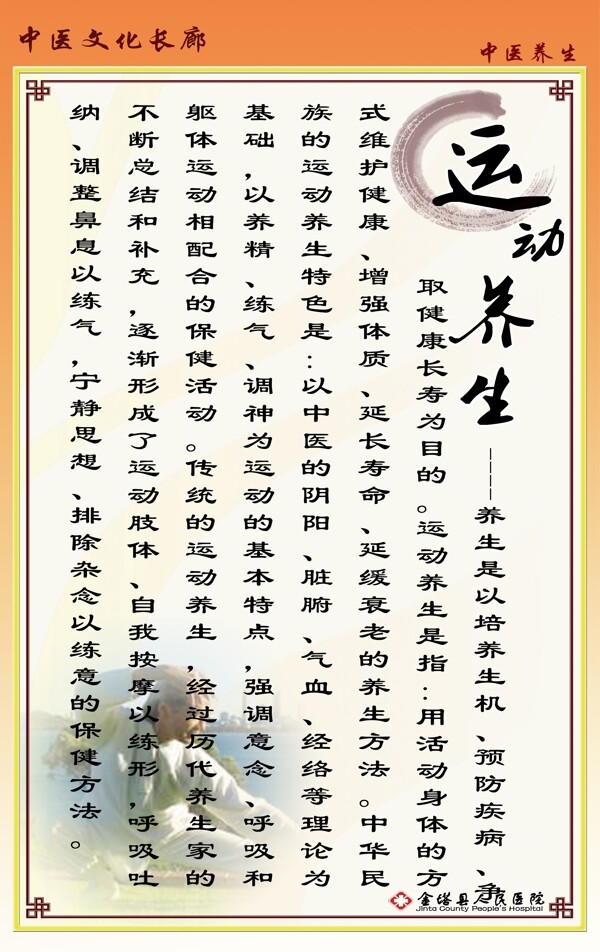 中医文化长廊
中医养生
运动养生
-----养生是以培养生机、预防疾病、争
取健康长寿为目的。运动养生是指：用活动身体的方
式维护健康、增强体质、延长寿命、延缓衰老的养生方法。中华民
族的运动养生特色是：以中医的阴阳、脏腑、气血、经络等理论为
基础，以养精、练气、调神为运动的基本特点，强调意念、呼吸和
躯体运动相配合的保健活动。传统的运动养生，经过历代养生家的
不断总结和补充，逐渐形成了运动肢体、自我按摩以练形，呼吸吐
纳、调整鼻息以练气，宁静思想、排除杂念以练意的保健方法。
金塔县人民医院
Jinta County People's Hospital